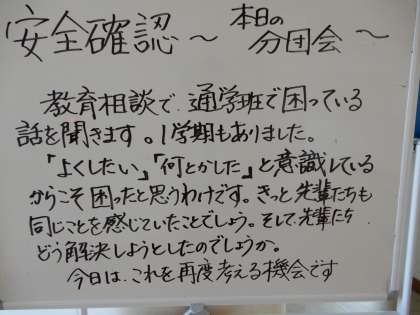 安全確認～ 本日の分団会～
教育相談で、通学班で困っている
話を聞きます。1学期もありました。
「よくしたい」「何とかしたい」と意識している
からこそ困ったと思うわけです。きっと先輩たちも
同じことを感じていたことでしょう。そして、先輩たちは
どう解決しようとしたのでしょうか。
今日は、これを再度考える機会です